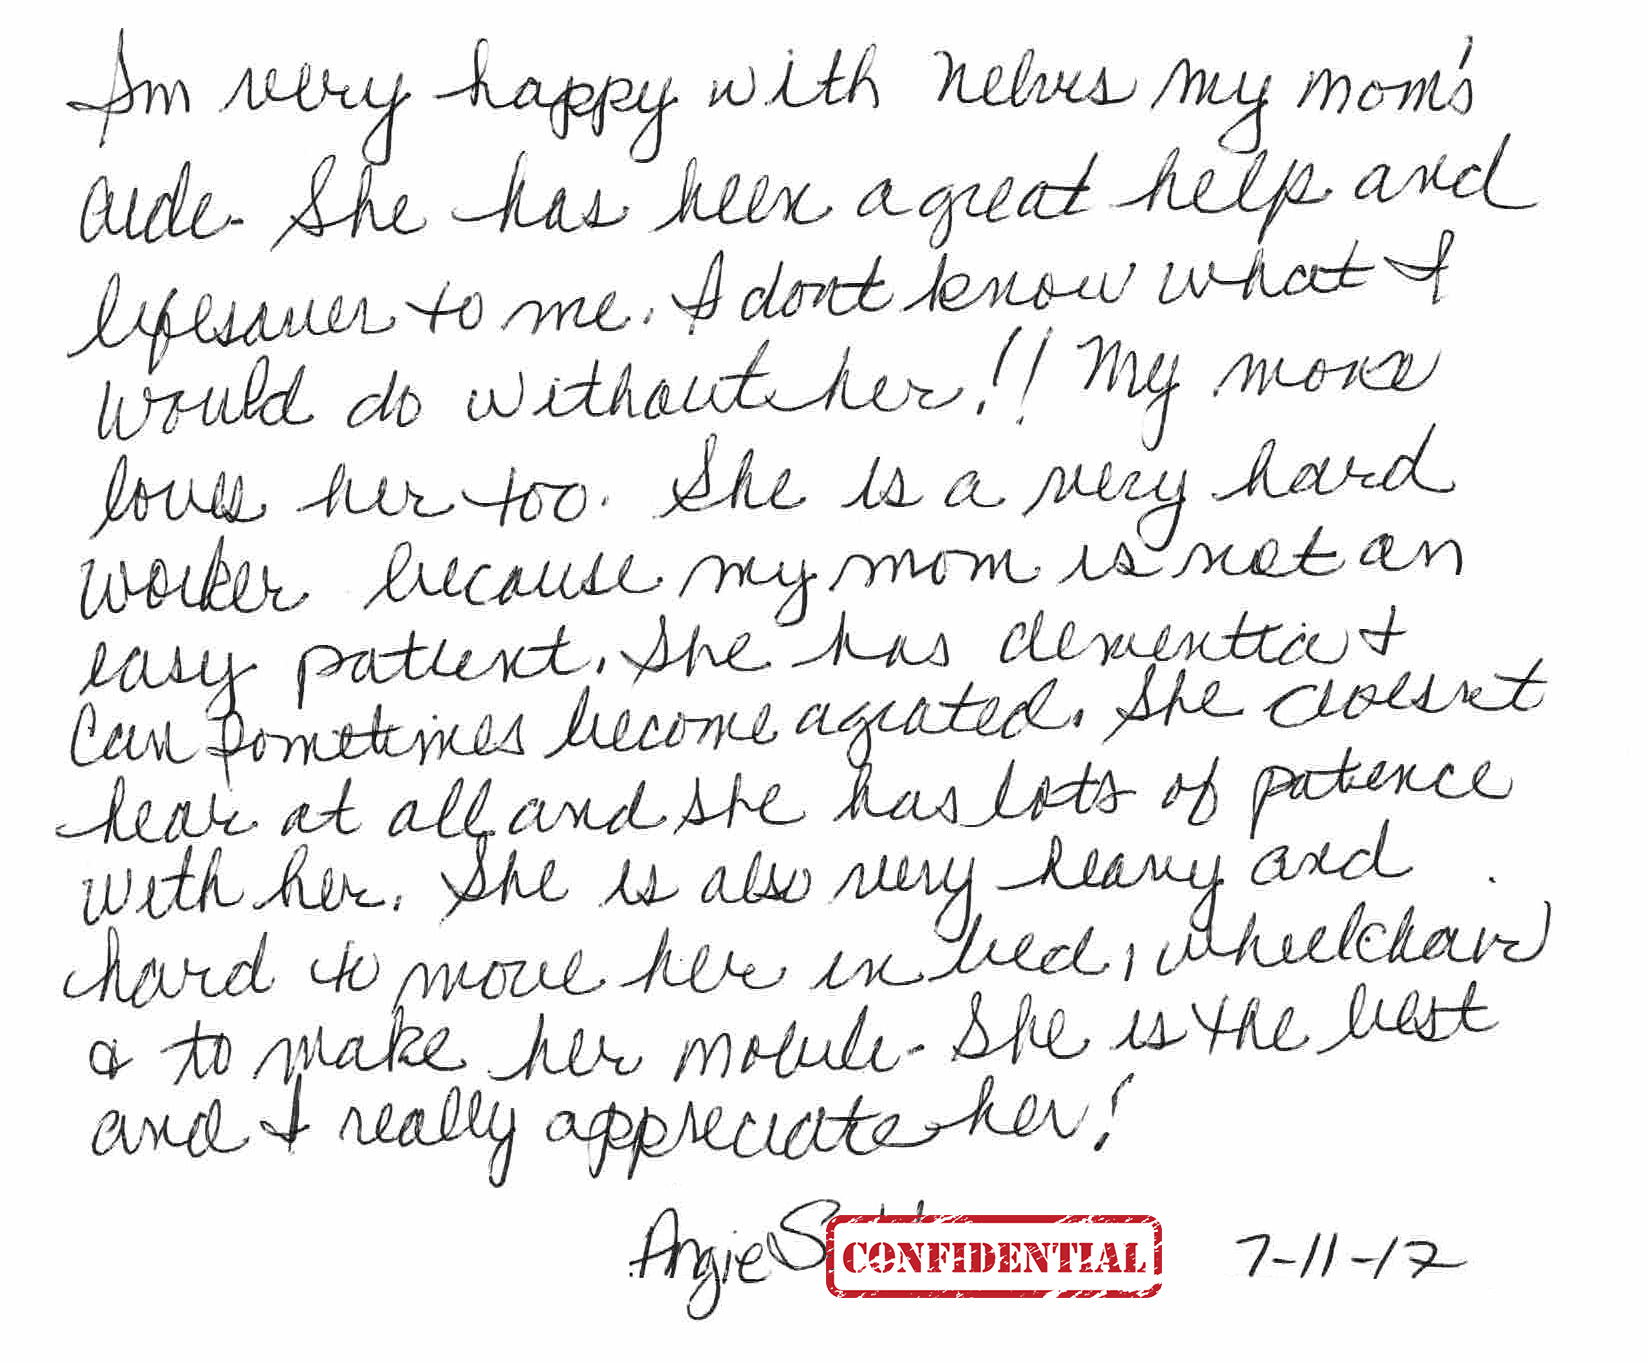 Am very happy with Nelvis my mom's
aide. She has been a great help and
lifesaver to me. I dont know what I
would do without her!! My mom
loves her too. She is a very hard
worker because my mom is not an
easy patient. She has dementia &
can sometimes become agiated. She doesnt
hear at all and she has lots of patience
with her. She is also very heavy and
hard to move her in bed, wheelchair
& to make her mobile. She is the best
and I really appreciate her!
Angie
CONFIDENTIAL
7-11-17